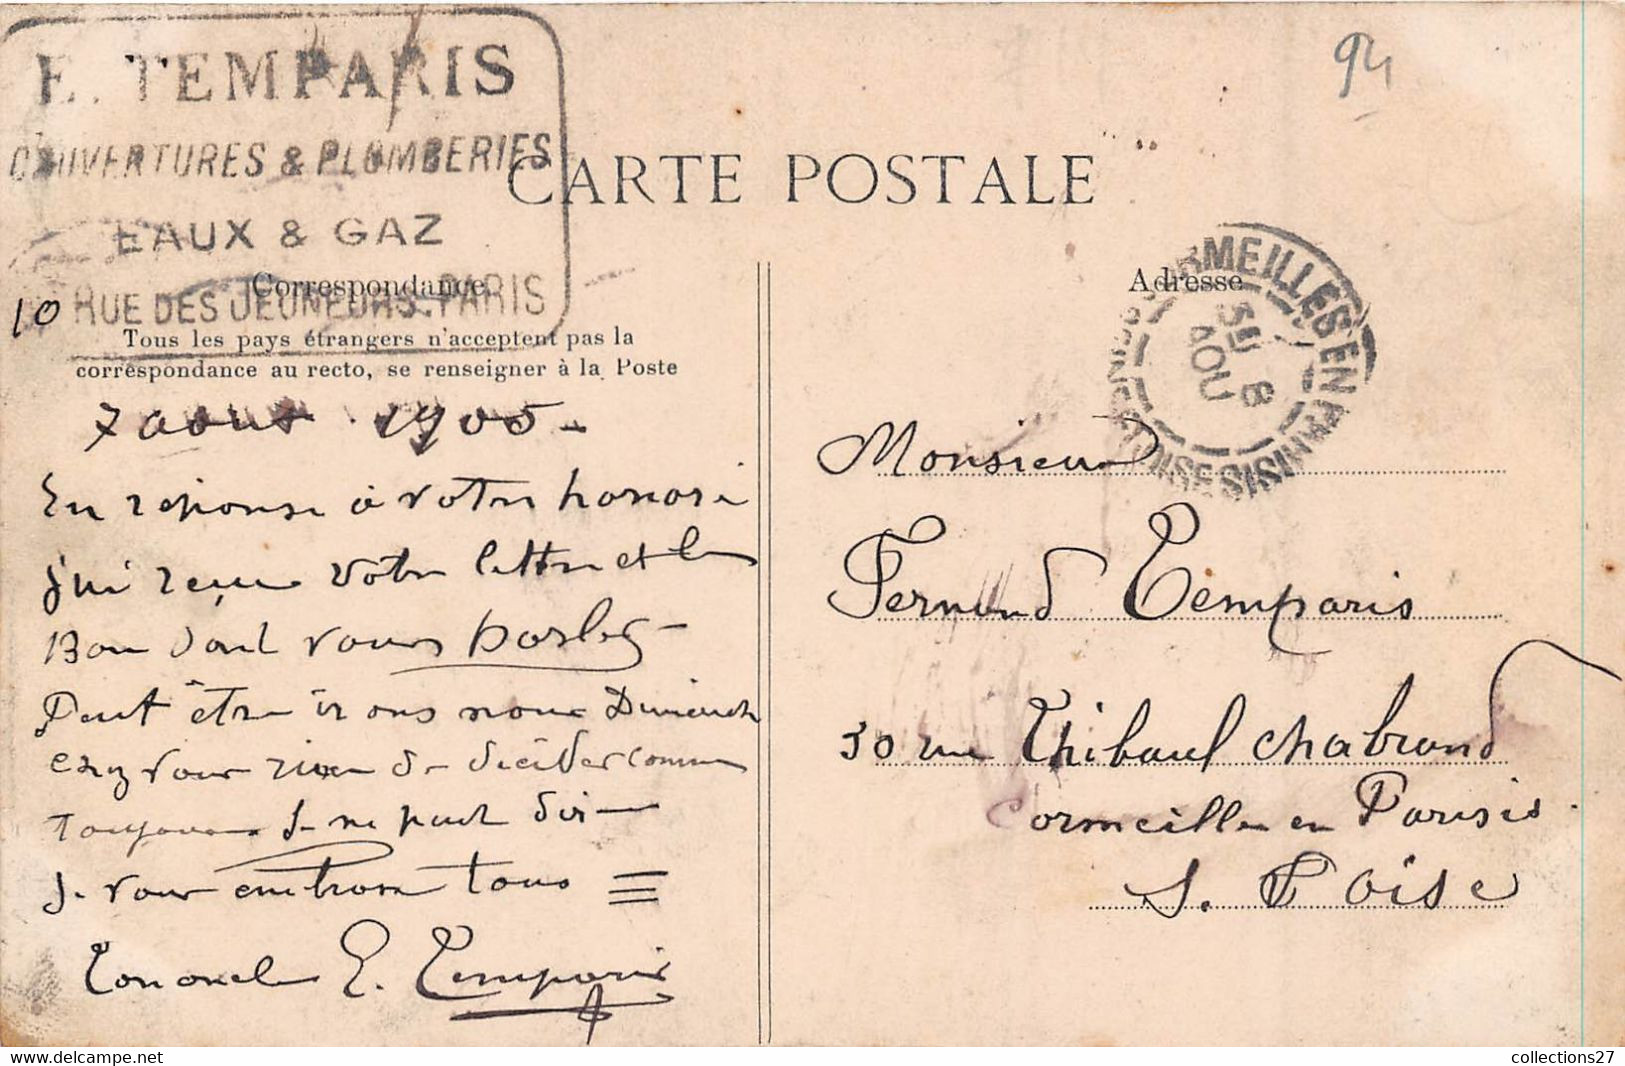 E. TEMPARIS
COUVERTURES & PLOMBERIES
EAUX & GAZ
10 RUE DES JEUNEURS. PARIS
CARTE POSTALE
94
Correspondance
Tous les pays étrangers n'acceptent pas la
correspondance au recto, se renseigner à la Poste
7 aout 1905 -
En reponse à votre honoré
j'ai reçu votre lettre et le
Bon dont vous parlez -
Peut être irons nous Dimanche
chez vous rien de décider comme
Toujours je ne peut dire
Je vous embrasse tous
Ton oncle E. Temparis
Adresse
CORMEILLES EN PARISIS SEINE-ET-OISE
8 AOU
Monsieur
Fernand Temparis
30 rue Thibaul Chabrand
Cormeille en Parisis.
S. et Oise
collections27